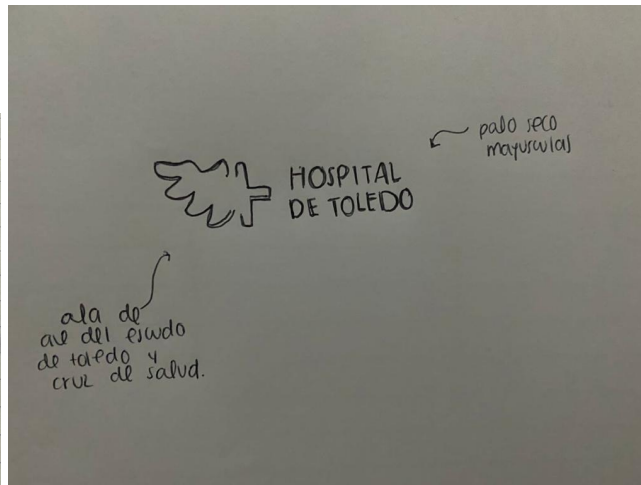 palo seco
mayusculas
HOSPITAL
DE TOLEDO
ala de
ave del escudo
de toledo y
cruz de salud.